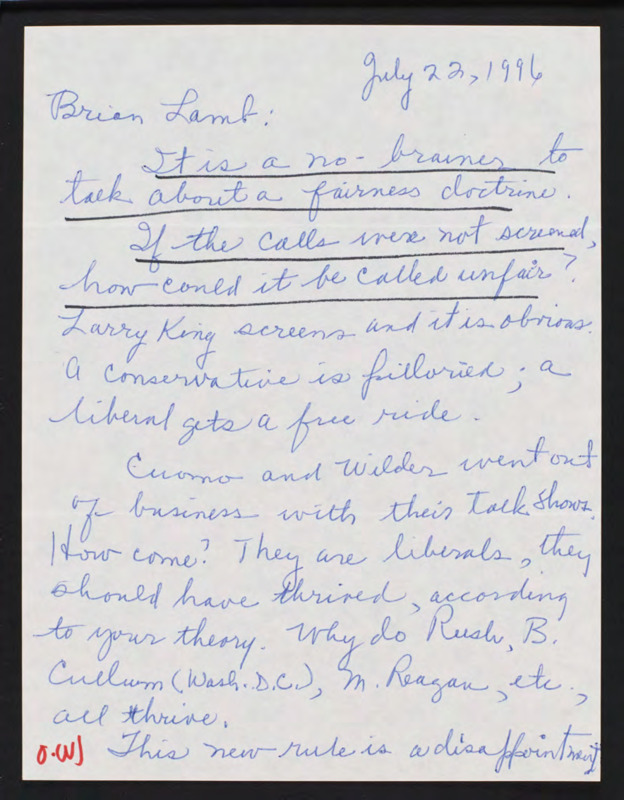 July 22, 1996
Brian Lamb:
It is a no-brainer to
talk about a fairness doctrine.
If the calls were not screened,
how could it be called unfair?
Larry King screens and it is obvious.
A conservative is pilloried; a
liberal gets a free ride.
Cuomo and Wilder went out
of business with their talk shows.
How come? They are liberals, they
should have thrived, according
to your theory. Why do Rush, B.
Cullum (Wash. D.C.), M. Reagan, etc.,
all thrive.
This new rule is a disappointment